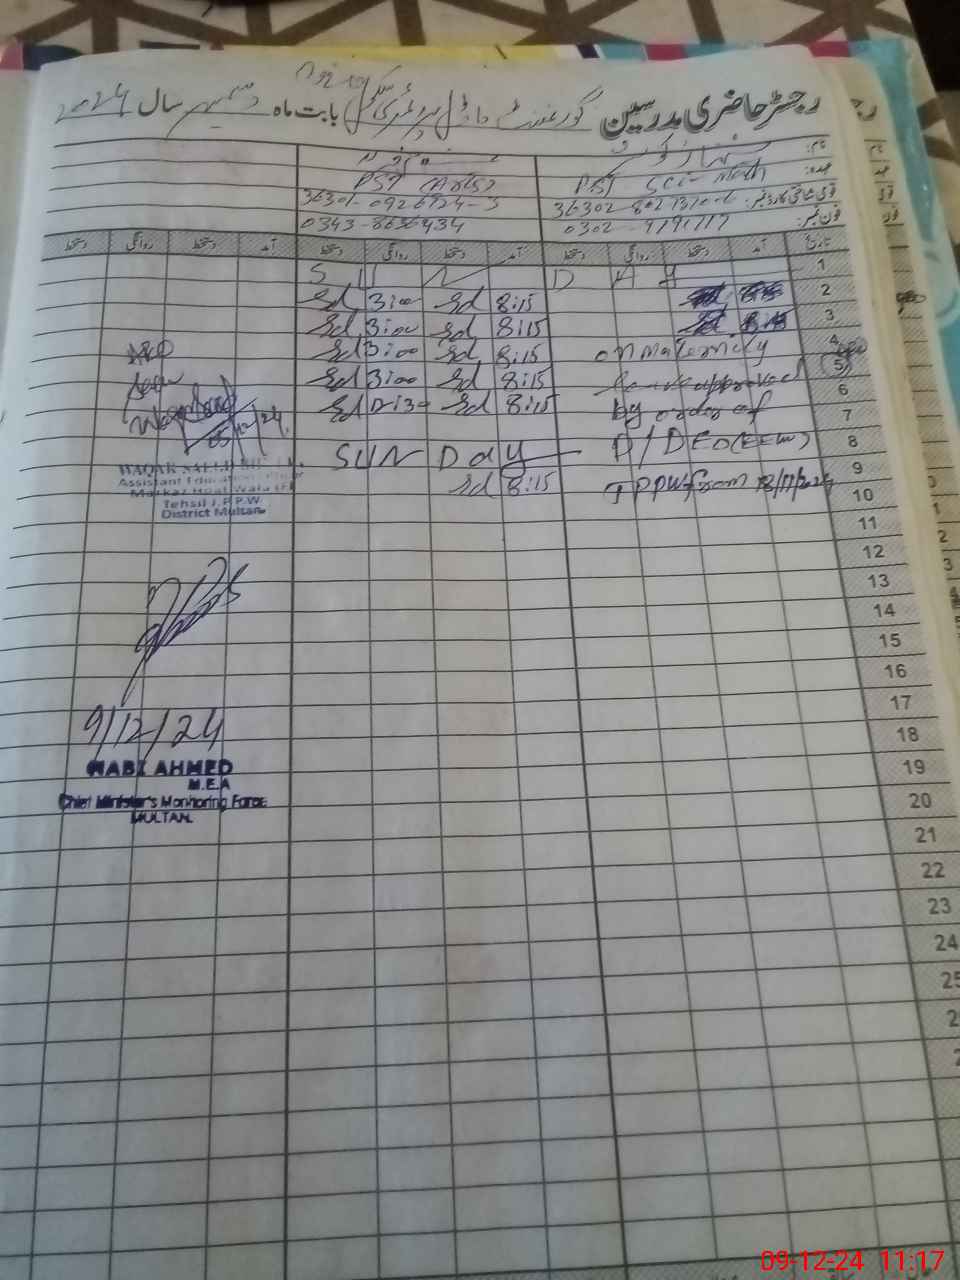 رجسٹر حاضری مدرسین گورنمنٹ ماڈل پرائمری سکول بابت ماہ دسمبر سال 2024
نام:
عہدہ: PST Sci-Math PST (Arts)
قومی شناختی کارڈ نمبر: 36301-0926924-3
فون نمبر: 0302-9191717 0343-8636434
تاریخ آمد دستخط روانگی دستخط آمد دستخط روانگی دستخط آمد دستخط روانگی دستخط
1 S U N D A Y
2 Sd 3:00 Sd 8:15
3 Sd 3:00 Sd 8:15
4 Sd 3:00 Sd 8:15 on maternity
5 Sd 3:00 Sd 8:15 leave approved
6 Sd 12:30 Sd 8:15 by order of
7
8 SUN Day D/DEO(EE-W)
9 Sd 8:15 JPPW from 18/11/2024
10
11
12
13
14
15
16
17
18
19
20
21
22
23
24
25
AEO
05/12/24
Assistant Education Officer
Tehsil J.P.P.W.
District Multan
9/12/24
NABI AHMED
M.E.A
Chief Minister's Monitoring Force
MULTAN.
09-12-24 11:17